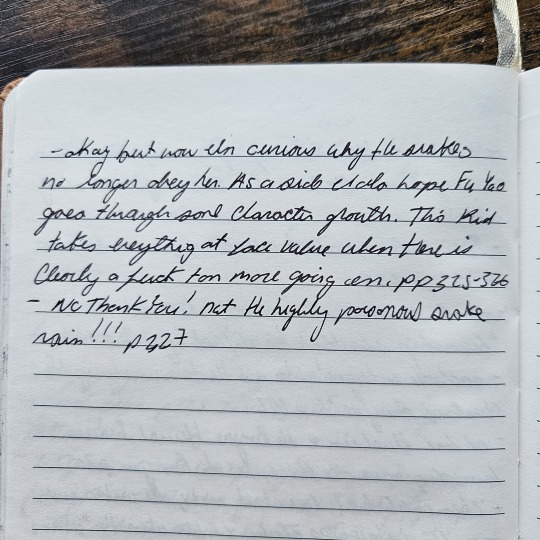 - okay but now I'm curious why the snakes
no longer obey her. As a side I do hope Fu Yao
goes through some character growth. This kid
takes everything at face value when there is
clearly a fuck ton more going on. pp 325-326
- No Thank You! not the highly poisonous snake
rain!!! p327